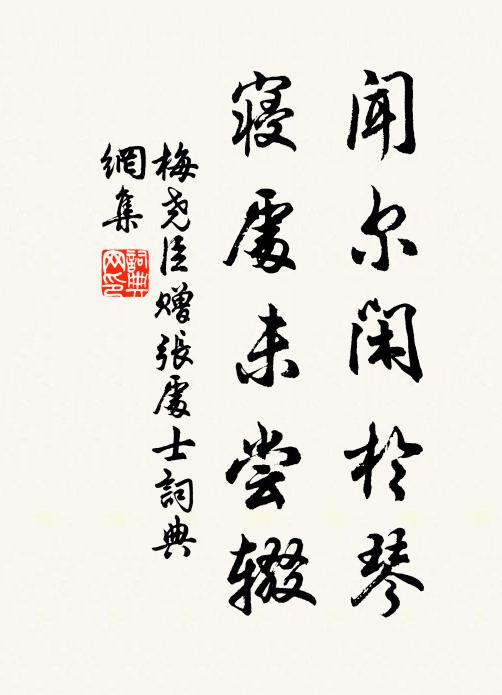 闻尔闲于琴
寝处未尝辍
梅尧臣赠张處士詞典
網集
詞典网印